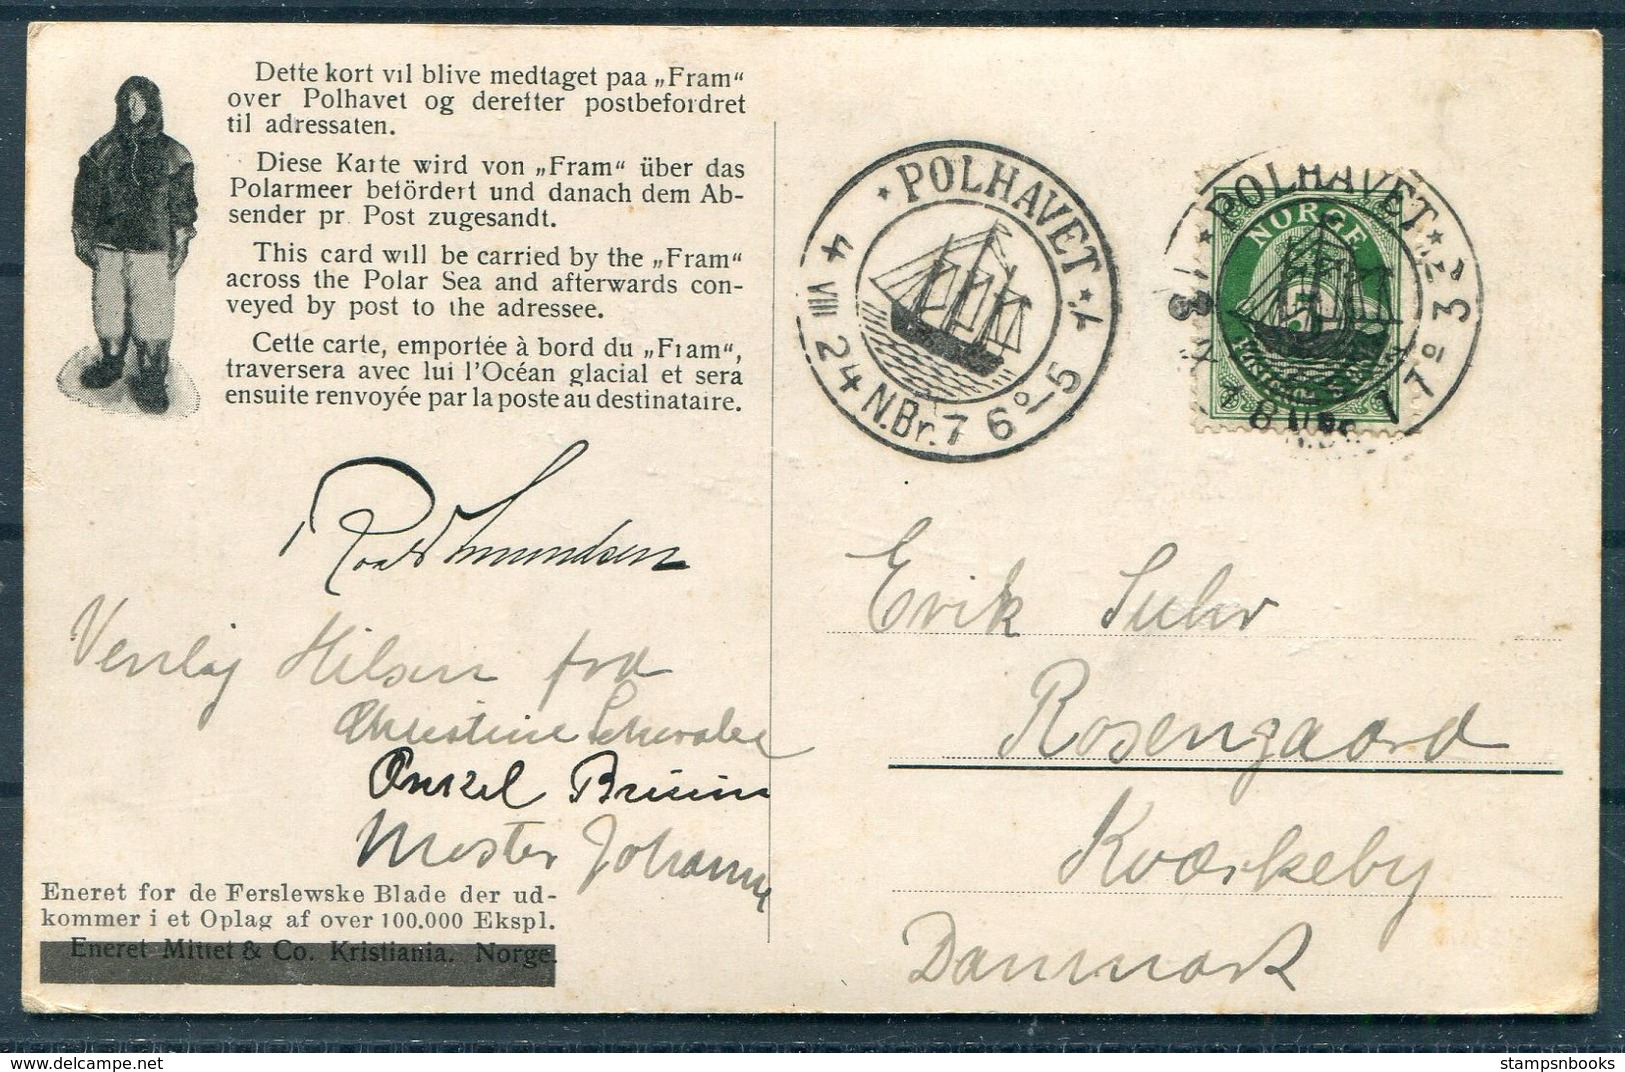 Dette kort vil blive medtaget paa „Fram“
over Polhavet og derefter postbefordret
til adressaten.
Diese Karte wird von „Fram“ über das
Polarmeer befördert und danach dem Ab-
sender pr. Post zugesandt.
This card will be carried by the „Fram“
across the Polar Sea and afterwards con-
veyed by post to the adressee.
Cette carte, emportée à bord du „Fram“,
traversera avec lui l'Océan glacial et sera
ensuite renvoyée par la poste au destinataire.
Roald Amundsen
Venlig Hilsen fra
Christine
Onkel
Mester Johanne
Eneret for de Ferslewske Blade der ud-
kommer i et Oplag af over 100.000 Ekspl.
Eneret Mittet & Co. Kristiania. Norge.
* POLHAVET *
4 VIII 24 N.Br. 76°-5
POLHAVET *
NORGE
5
Erik Suhr
Rosengaard
Kværkeby
Danmark
stampsnbooks